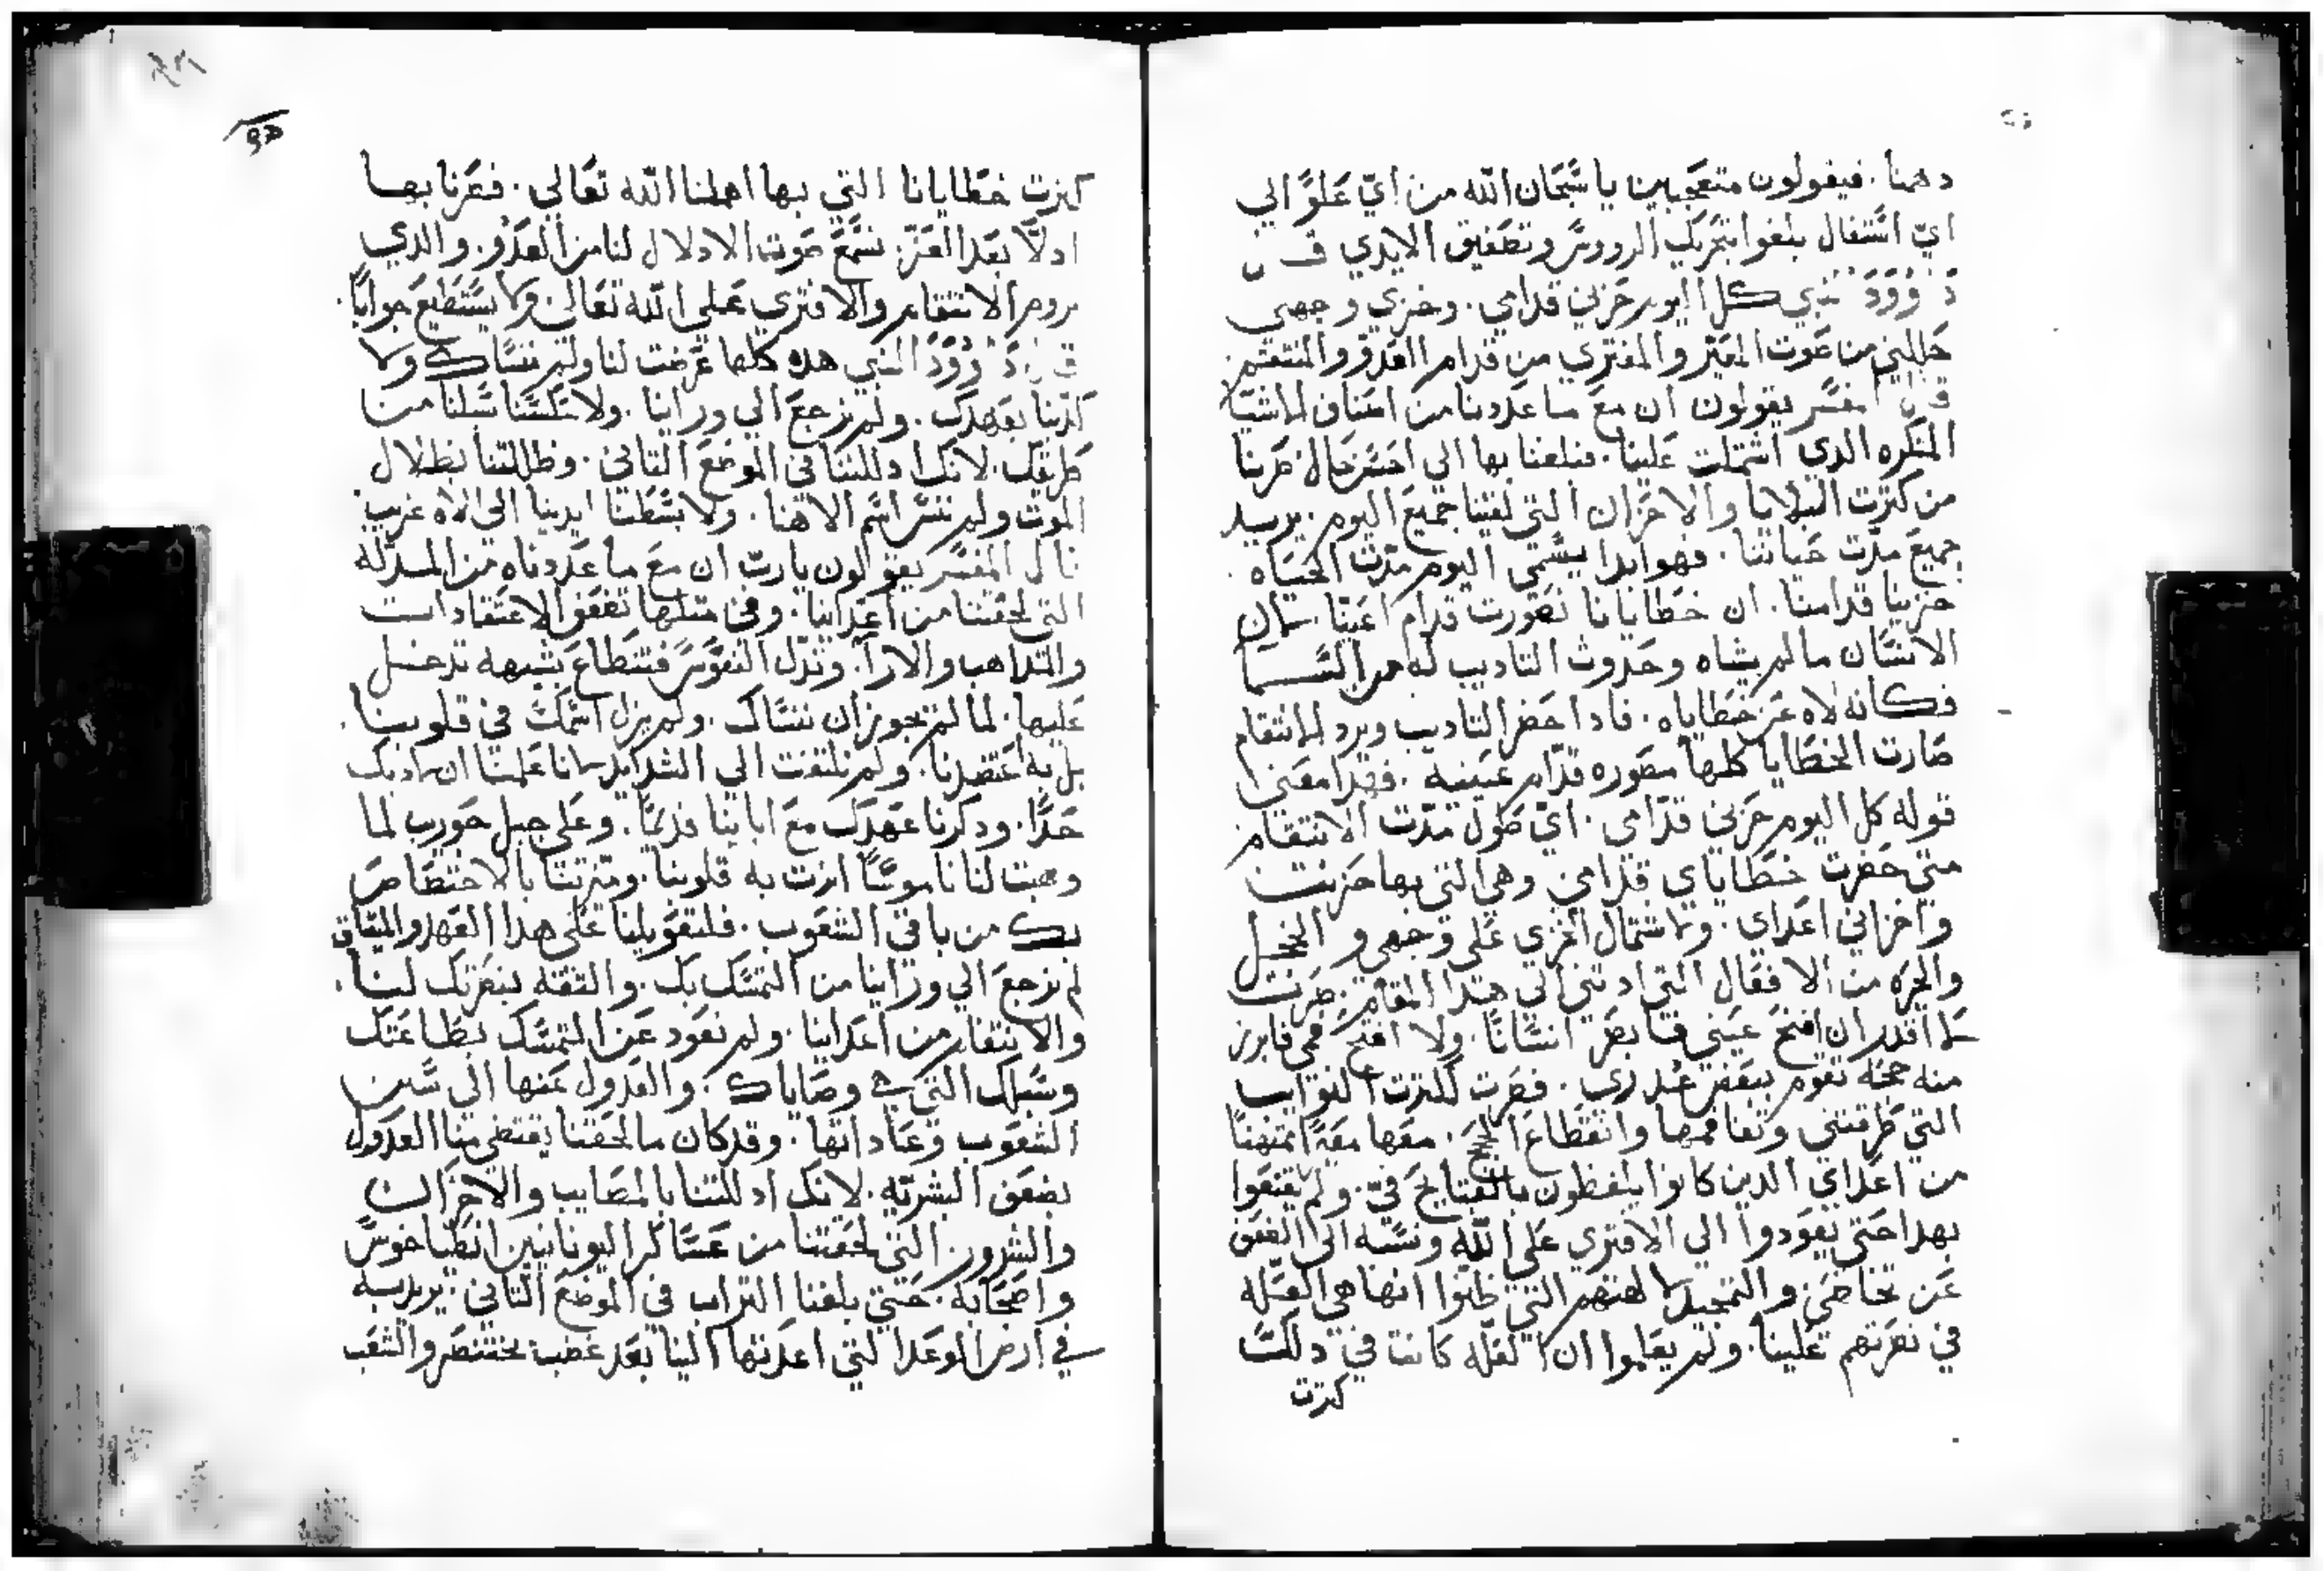 دهمنا. فيقولون متعجبين يا سبحان الله من اي علو الي
اي استفال بلغوا بتحريك الرووس وتصفيق الايدي ق
دَوُود النبي كل اليوم حزني قدامي. وخزي وجهي
جللني من صوت المعير والمفتري من قدام العدو والمنتقم
قال المفسر يقولون ان مع ما عددنا من اصناف الاشيا
المنكره الذي اشتملت علينا. فبلغنا بها الي احس حال صرنا
من كترت البلايا والاحزان التي لقتنا جميع اليوم. يريد
جميع مدت حياتنا. فهو ابدا يسمي اليوم مدت الحياه
حزننا قدامنا. ان خطايانا تصورت قدام اعيننا سان
الانسان ما لم يشاه وحدوث التاديب له من السما
فكانه لاه عن خطاياه. فادا حضر التاديب ويرد الانتقام
صارت الخطايا كلها مصوره قدام عينيه. فهدا معني
قوله كل اليوم حزني قدامي. اي طول مدت الانتقام
متي حضرت خطاياي قدامي وهي التي بها حزنت
واخزاني اعداي. ولاشتمال الخزي علي وجهي والخجل
والحيره من الافعال التي ادتني الي هدا المقام. صرت
لا اقدر ان افتح عيني فابصر انسانا. ولا افتح فمي فابرز
منه حجه تقوم ببعض عدري. فصرت لكترت النوايب
التي طرقتني وتفاقمها وانقطاع معها معيرا ممتهنا
من اعداي الدين كانوا يلفظون بالقبايح في. ولم يقنعوا
بهدا حتي يعودوا الي الافتري علي الله ونسبه الي الضعف
عن تخاضي والتمجيد لالهتهم التي ظنوا انها هي العله
في نصرتهم علينا. ولم يعلموا ان العله كانت في دلك
كترت
كترت خطايانا التي بها اهملنا الله تعالي. فصرنا بها
ادلا بعد العز. نسمع صوت الادلال لنا من العدو. والدي
يروم الانتقام والافتري علي الله تعالي ولا يستطيع جوابا.
قال دَوُود النبي هده كلها عرضت لنا ولم ننساك ولا
كدبنا بعهدك. ولم نرجع الي وراينا. ولا نكسنا سبلنا من
طرقك. لانك ادللتنا في الموضع التاني. وظللتنا بظلال
الموت ولم ننس اسم الاهنا. ولا بسطنا ايدينا الي الاه غريب
قال المفسر يقولون يارب ان مع ما عددناه من المدله
التي لحقتنا من اعداينا. وفي متلها تضعف الاعتقادات
والمداهب والارا. وتدل النفوس فتنطاع بشبهه تدخل
عليها. لما لم نجوز ان ننساك. ولم يزل اسمك في قلوبنا.
بل به اعتضدنا. ولم نلتفت الي الشدايد لانا علمنا ان لادبك
حدا. ودكرنا عهدك مع اباينا قديما. وعلي جبل حوريب لما
وهبت لنا ناموسا انرت به قلوبنا. وميزتنا بالاختصاص
بك من باقي الشعوب. فلتقويلنا علي هدا العهد والميتاق
لم نرجع الي وراينا من التمسك بك. والتقه بنصرتك لنا.
والانتقام من اعداينا. ولم نعود عن التمسك بطاعتك
وسبلك التي هي وصاياك. والعدول عنها الي سنن
الشعوب وعاداتها. وقد كان ما لحقنا يقتضي منا العدول
بضعف البشريه. لانك ادللتنا بالمصايب والاحزان
والشرور التي لحقتنا من عساكر اليونانيين انطياخوس
واصحابه. حتي بلغنا التراب في الموضع التاني. يريد به
في ارض الوعد التي اعدتها الينا بعد غضب بختنصر والشعب